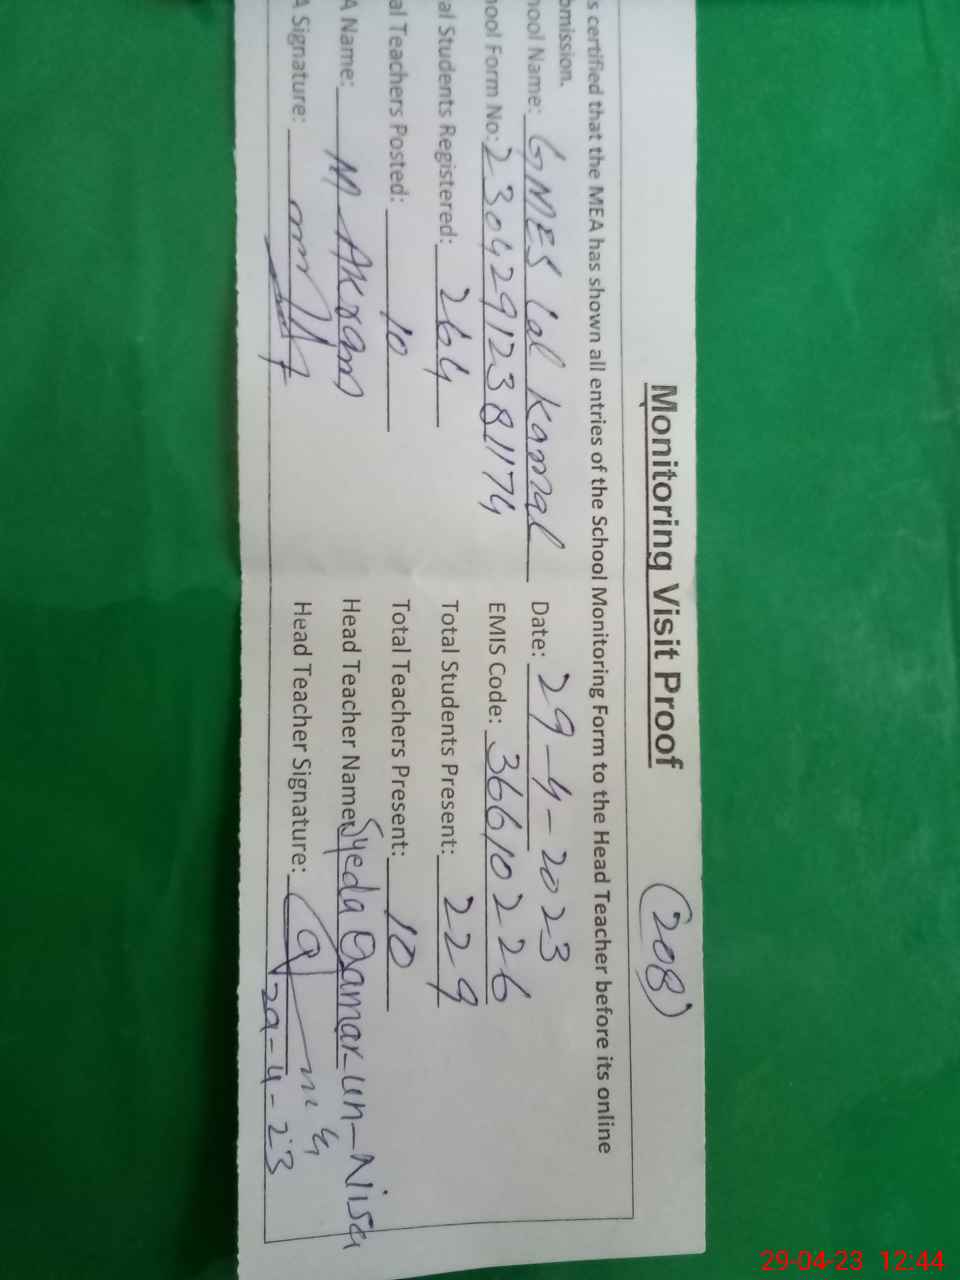 Monitoring Visit Proof
(208)
s certified that the MEA has shown all entries of the School Monitoring Form to the Head Teacher before its online
bmission.
hool Name: GMES Lal Kamal Date: 29-4-2023
hool Form No: 23042912381174 EMIS Code: 36610226
al Students Registered: 264 Total Students Present: 229
al Teachers Posted: 10 Total Teachers Present: 10
A Name: M Akram Head Teacher Name: Syeda Qamar-un-Nisa
A Signature: Head Teacher Signature:
29-4-23
29-04-23 12:44